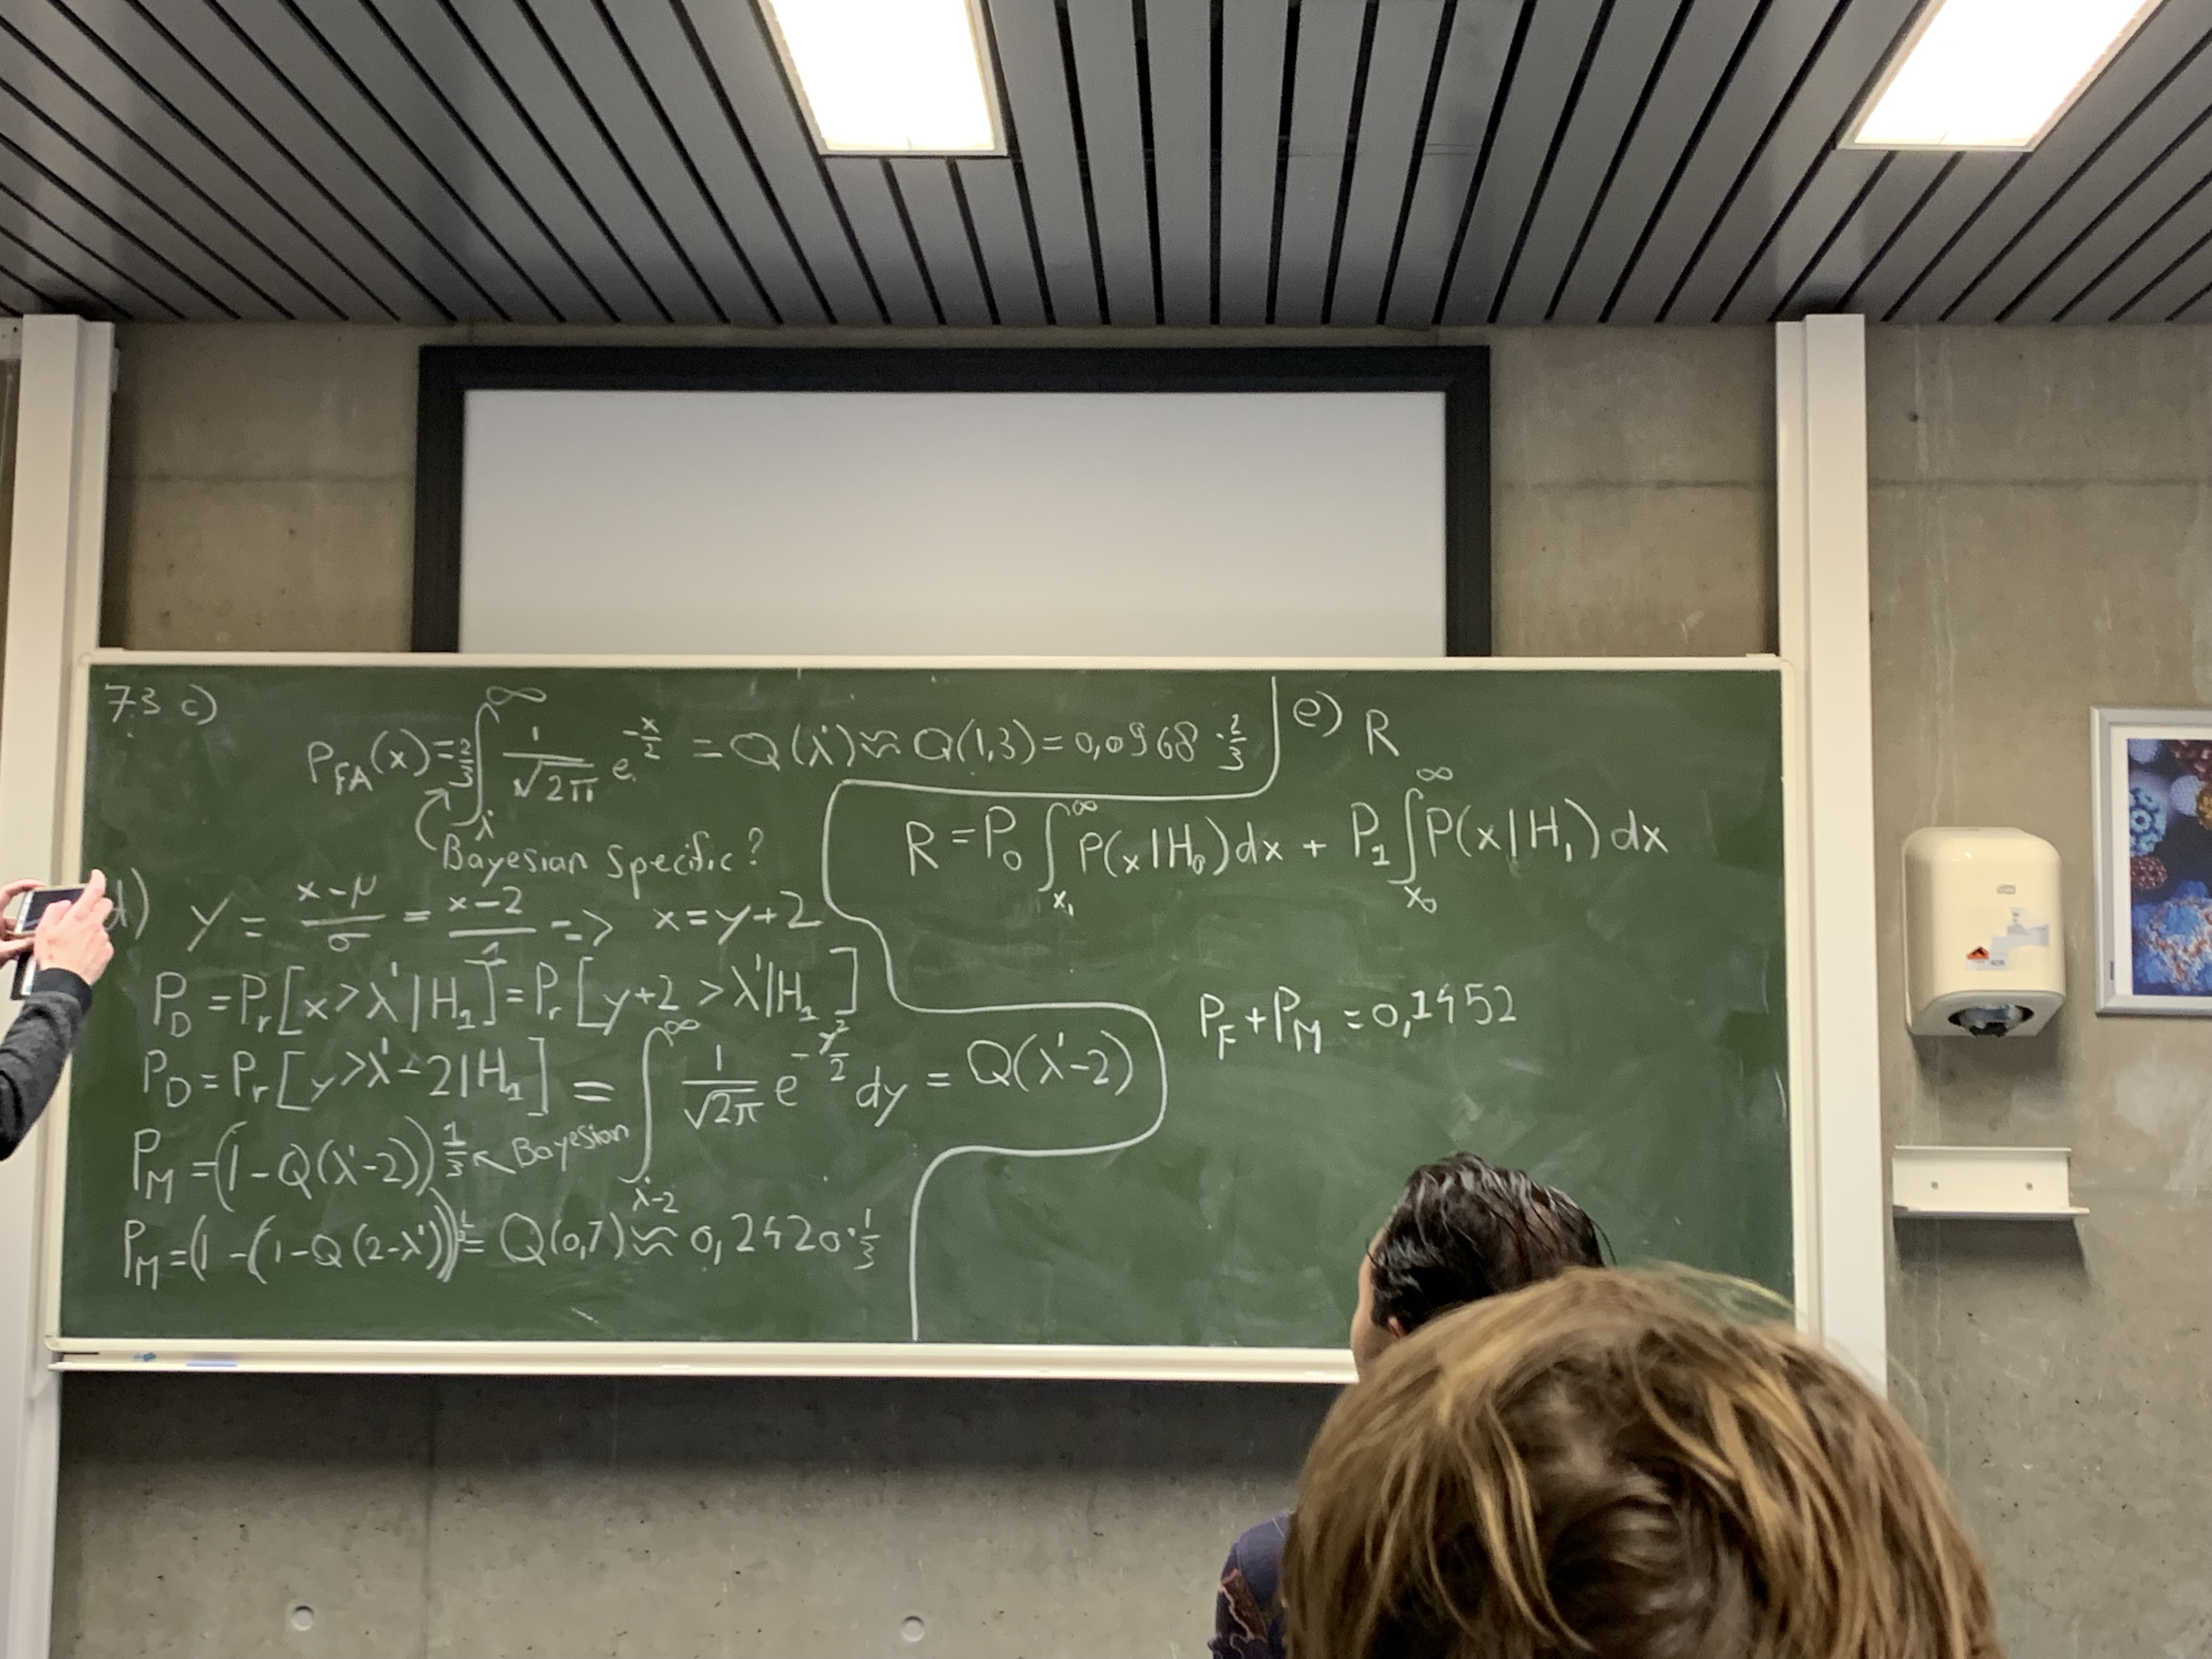 7.3 c)
P_FA(x) = 2/3 ∫_λ'^∞ 1/√2π e^(-x/2) = Q(λ') ≈ Q(1,3) = 0,0968 · 2/3
Bayesian Specific?
d) y = (x-μ)/σ = (x-2)/1 => x = y+2
P_D = P_r[x > λ' | H_1] = P_r[y+2 > λ' | H_1]
P_D = P_r[y > λ'-2 | H_1] = ∫_λ'-2^∞ 1/√2π e^(-y²/2) dy = Q(λ'-2)
P_M = (1 - Q(λ'-2)) 1/3 ↖ Bayesian
P_M = (1 - (1 - Q(2-λ'))) 1/3 = Q(0,7) ≈ 0,2420 · 1/3
e) R
R = P_0 ∫_x_1^∞ P(x|H_0) dx + P_1 ∫_x_0^∞ P(x|H_1) dx
P_F + P_M = 0,1452